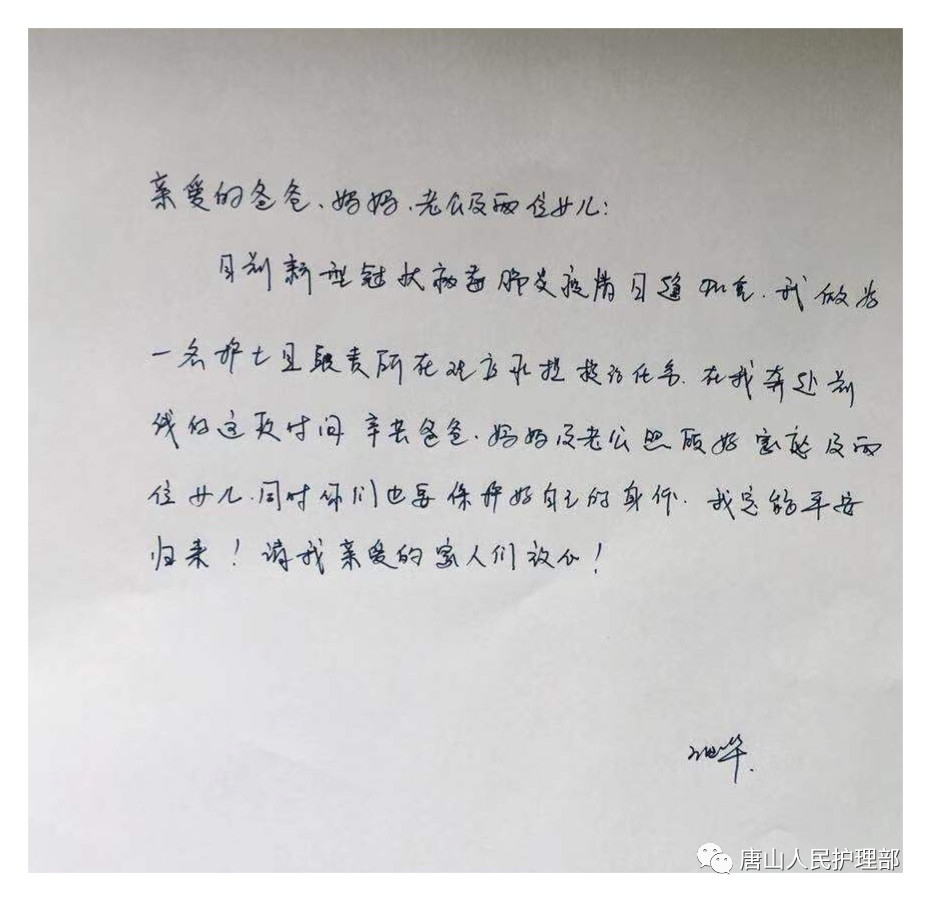 亲爱的爸爸、妈妈、老公及两位女儿：
目前新型冠状病毒肺炎疫情日趋加重，我做为
一名护士且职责所在理应承担救治任务，在我奔赴前
线的这段时间辛苦爸爸、妈妈及老公照顾好家庭及两
位女儿，同时你们也要保护好自己的身体，我定能平安
归来！请我亲爱的家人们放心！
唐山人民护理部